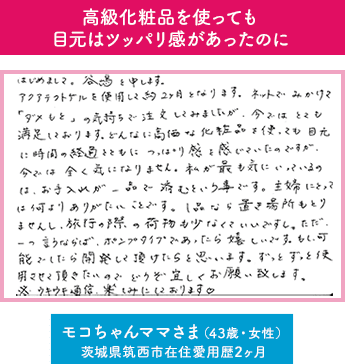 高級化粧品を使っても
目元はツッパリ感があったのに
はじめまして。谷嶋と申します。
アクアテクトゲルを使用して約2ヶ月となります。ネットでみかけて
「ダメもと」の気持ちで注文してみましたが、今ではとても
満足しております。どんなに高価な化粧品を使っても目元
に時間の経過とともにつっぱり感を感じていたのですが、
今では全く気になりません。私が最も気にいっているの
は、お手入れが一品で済むという事です。主婦にとって
は何よりありがたいことです。1品なら置き場所もとり
ませんし、旅行の際の荷物も少なくていいですし。ただ、
一つ言うならば、ポンプタイプであったら嬉しいです。もし、可
能でしたら開発して頂けたらと思います。ずっとずっと使
用させて頂きたいのでどうぞ宜しくお願い致します。
※ウキウキ通信、楽しみにしております♡
モコちゃんママさま（43歳・女性）
茨城県筑西市在住愛用歴2ヶ月